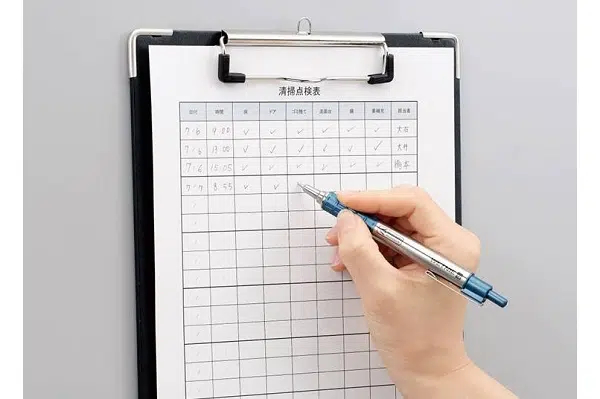 清掃点検表
日付 時間 床 ドア ゴミ捨て 洗面台 鏡 備補充 担当者
7/6 9:00 ✓ ✓ ✓ ✓ ✓ ✓ 大石
7/6 13:00 ✓ ✓ ✓ ✓ ✓ ✓ 大井
7/6 15:05 ✓ ✓ ✓ ✓ ✓ ✓ 橋本
7/7 8:55 ✓ ✓